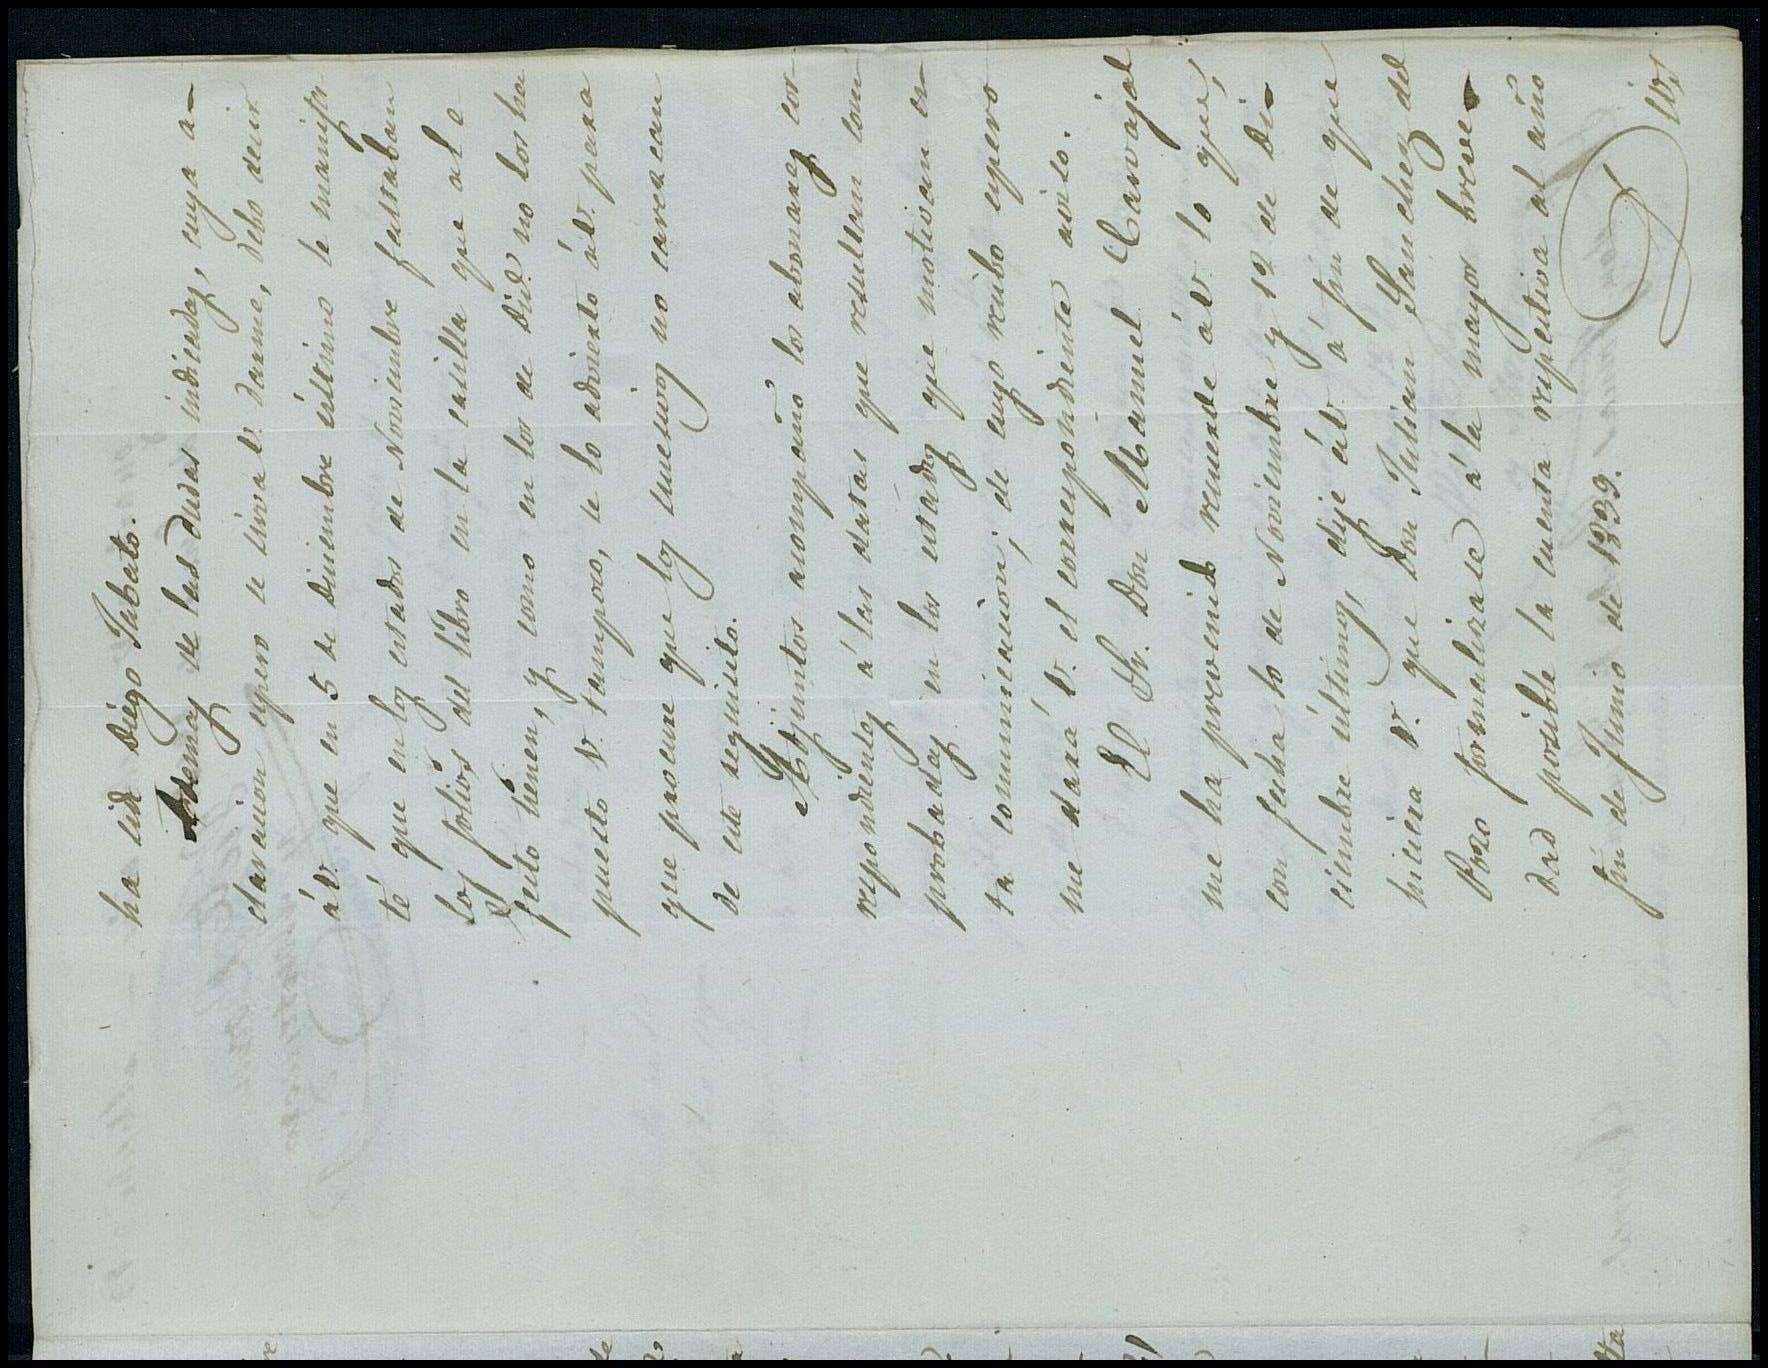 ha sid Diego Tubato.
Ademas de las dudas indicadas, cuya a-
claracion espero se sirva V. darme, debo decir
á V. que en 5 de Diciembre último le manifes
té que en los estados de Noviembre faltaban
los folios del libro en la casilla que al e
fecto tienen, y como en los de Dice no los ha
puesto V. tampoco, se lo advierto á V. para
que procure que los nuevos no carezcan
de este requisito.
Adjuntos acompaño los abonarez cor
respondientes á las datas que resultan com
probadas en los estados que motivan es-
ta comunicacion; de cuyo recibo espero
me dará V. el correspondiente aviso.
El Sr. Don Manuel Carvajal
me ha prevenido recuerde á V. lo que,
con fecha 10 de Noviembre y 12 de Di-
ciembre últimos, dije á V. á fin de que
hiciera V. que Don Julian Sanchez del
Pozo formalizase á la mayor breve-
dad posible la cuenta respectiva al año
fin de Junio de 1839.